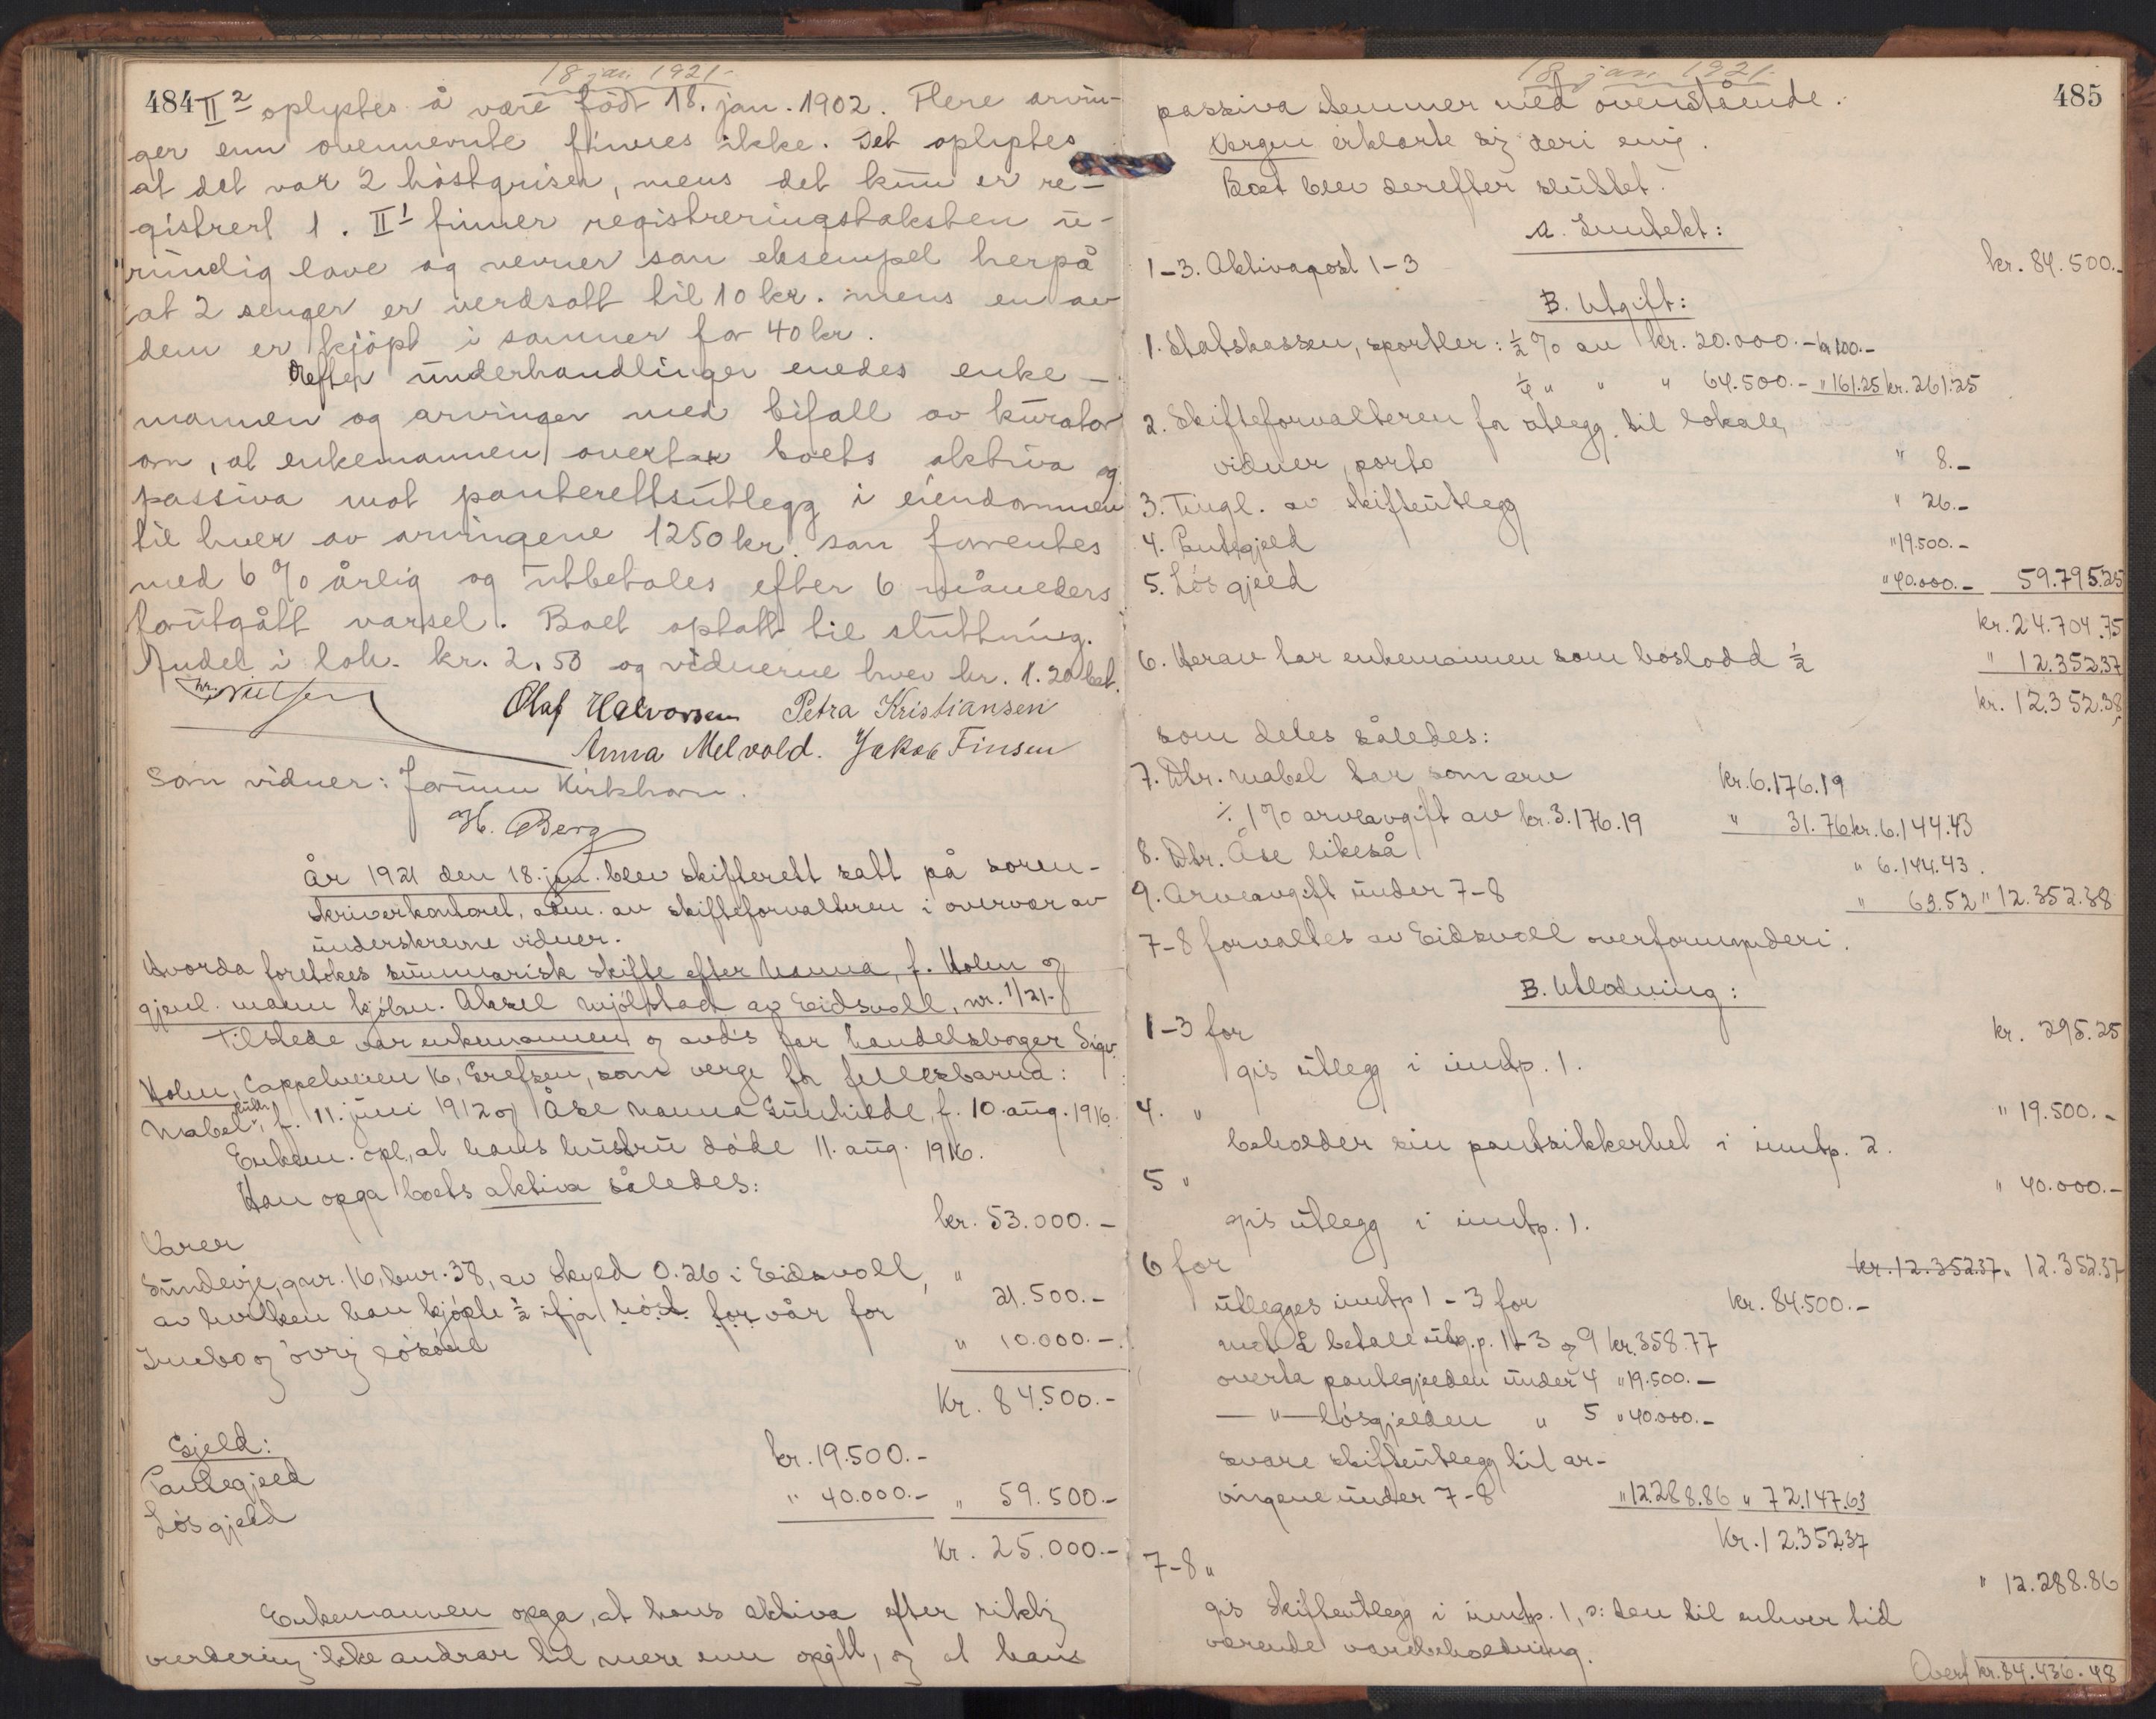 18 jan. 1921.
484 II² oplystes å være født 18. jan. 1902. Flere arvin-
ger enn ovennevnte finnes ikke. Det oplystes
at det var 2 høstgriser, mens det kun er re-
gistrert 1. II¹ finner registreringstaksten u-
rimelig lave og nevner som eksempel herpå
at 2 senger er verdsatt til 10 kr. mens en av
dem er kjøpt i sommer for 40 kr.
Efter underhandlinger enedes enke-
mannen og arvinger med bifall av kurator
om, at enkemannen overtar boets aktiva og
passiva mot panterettsutlegg i eiendommen
til hver av arvingene 1250 kr. som forrentes
med 6 % årlig og utbetales efter 6 måneders
forutgått varsel. Boet optatt til sluttning.
Andel i lok. kr. 2.50 og vidnerne hver kr. 1.20 bet.
Nielsen Olaf Halvorsen Petra Kristiansen
Anna Melvold. Jakob Finsen
Som vidner: Jørunn Kirkhorn.
H. Berg
År 1921 den 18. jan. blev skifterett satt på soren-
skriverkontoret, adm. av skifteforvalteren i overvær av
underskrevne vidner.
Hvorda foretokes summarisk skifte efter Nanna, f. Holm og
gjenl. mann kjøbm. Aksel Mjølstad av Eidsvoll, nr. 1/21.
Tilstede var enkemannen og avd's far handelsborger Sigv.
Holm, Cappelveien 16, Grefsen, som verge for fellesbarna:
Mabel Ruth, f. 11. juni 1912 og Åse Nanna Gunhilde, f. 10. aug. 1916.
Enkem. opl., at hans hustru døde 11. aug. 1916.
Han opga boets aktiva således:
Varer kr. 53.000.-
Sundevje, gnr. 16, bnr. 38, av skyld 0.26 i Eidsvoll,
av hvilken han kjøpte ½ ifjol høst for vår for " 21.500.-
Innbo og øvrig løsøre " 10.000.-
Kr. 84.500.-
Gjeld:
Pantegjeld kr. 19.500.-
Løsgjeld " 40.000.- " 59.500.-
Kr. 25.000.-
Enkemannen opga, at hans aktiva efter riktig
vurdering ikke andrar til mere enn opgitt, og at hans
18 jan. 1921.
485
passiva stemmer med ovenstående.
Vergen erklærte sig deri enig.
Boet blev derefter sluttet.
A. Inntekt:
1-3. Aktivapost 1-3 kr. 84.500.-
B. Utgift:
1. Statskassen, sportler: ½ % av kr. 20.000.- kr 100.-
¼ " " " 64.500.- " 161.25 kr. 261.25
2. Skifteforvalteren for utlegg til lokale,
vidner, porto " 8.-
3. Tingl. av skifteutlegg " 26.-
4. Pantegjeld " 19.500.-
5. Løsgjeld " 40.000.- 59.795.25
kr. 24.704.75
6. Herav har enkemannen som boslodd ½ " 12.352.37
kr. 12.352.38,
som deles således:
7. Dtr. Mabel har som arv kr. 6.176.19
÷ 1 % arveavgift av kr. 3.176.19 " 31.76 kr. 6.144.43
8. Dtr. Åse likeså " 6.144.43.
9. Arveavgift under 7-8 " 63.52 " 12.352.38
7-8 forvaltes av Eidsvoll overformynderi.
B. Utlodning:
1-3 for kr. 295.25
gis utlegg i inntp. 1.
4. " " 19.500.-
beholder sin pantsikkerhet i inntp. 2.
5 " " 40.000.-
gis utlegg i inntp. 1.
6 for kr. 12.352.37 " 12.352.37
utlegges inntp 1-3 for kr. 84.500.-
mot å betale utg.p. 1-3 og 9 kr. 358.77
overta pantegjelden under 4 " 19.500.-
— " — løsgjelden " 5 " 40.000.-
svare skifteutlegg til ar-
vingene under 7-8 " 12.288.86 " 72.147.63
Kr. 12.352.37
7-8 " " 12.288.86
gis skifteutlegg i inntp. 1, ɔ: den til enhver tid
værende varebeholdning.
Overf. kr. 84.436.48